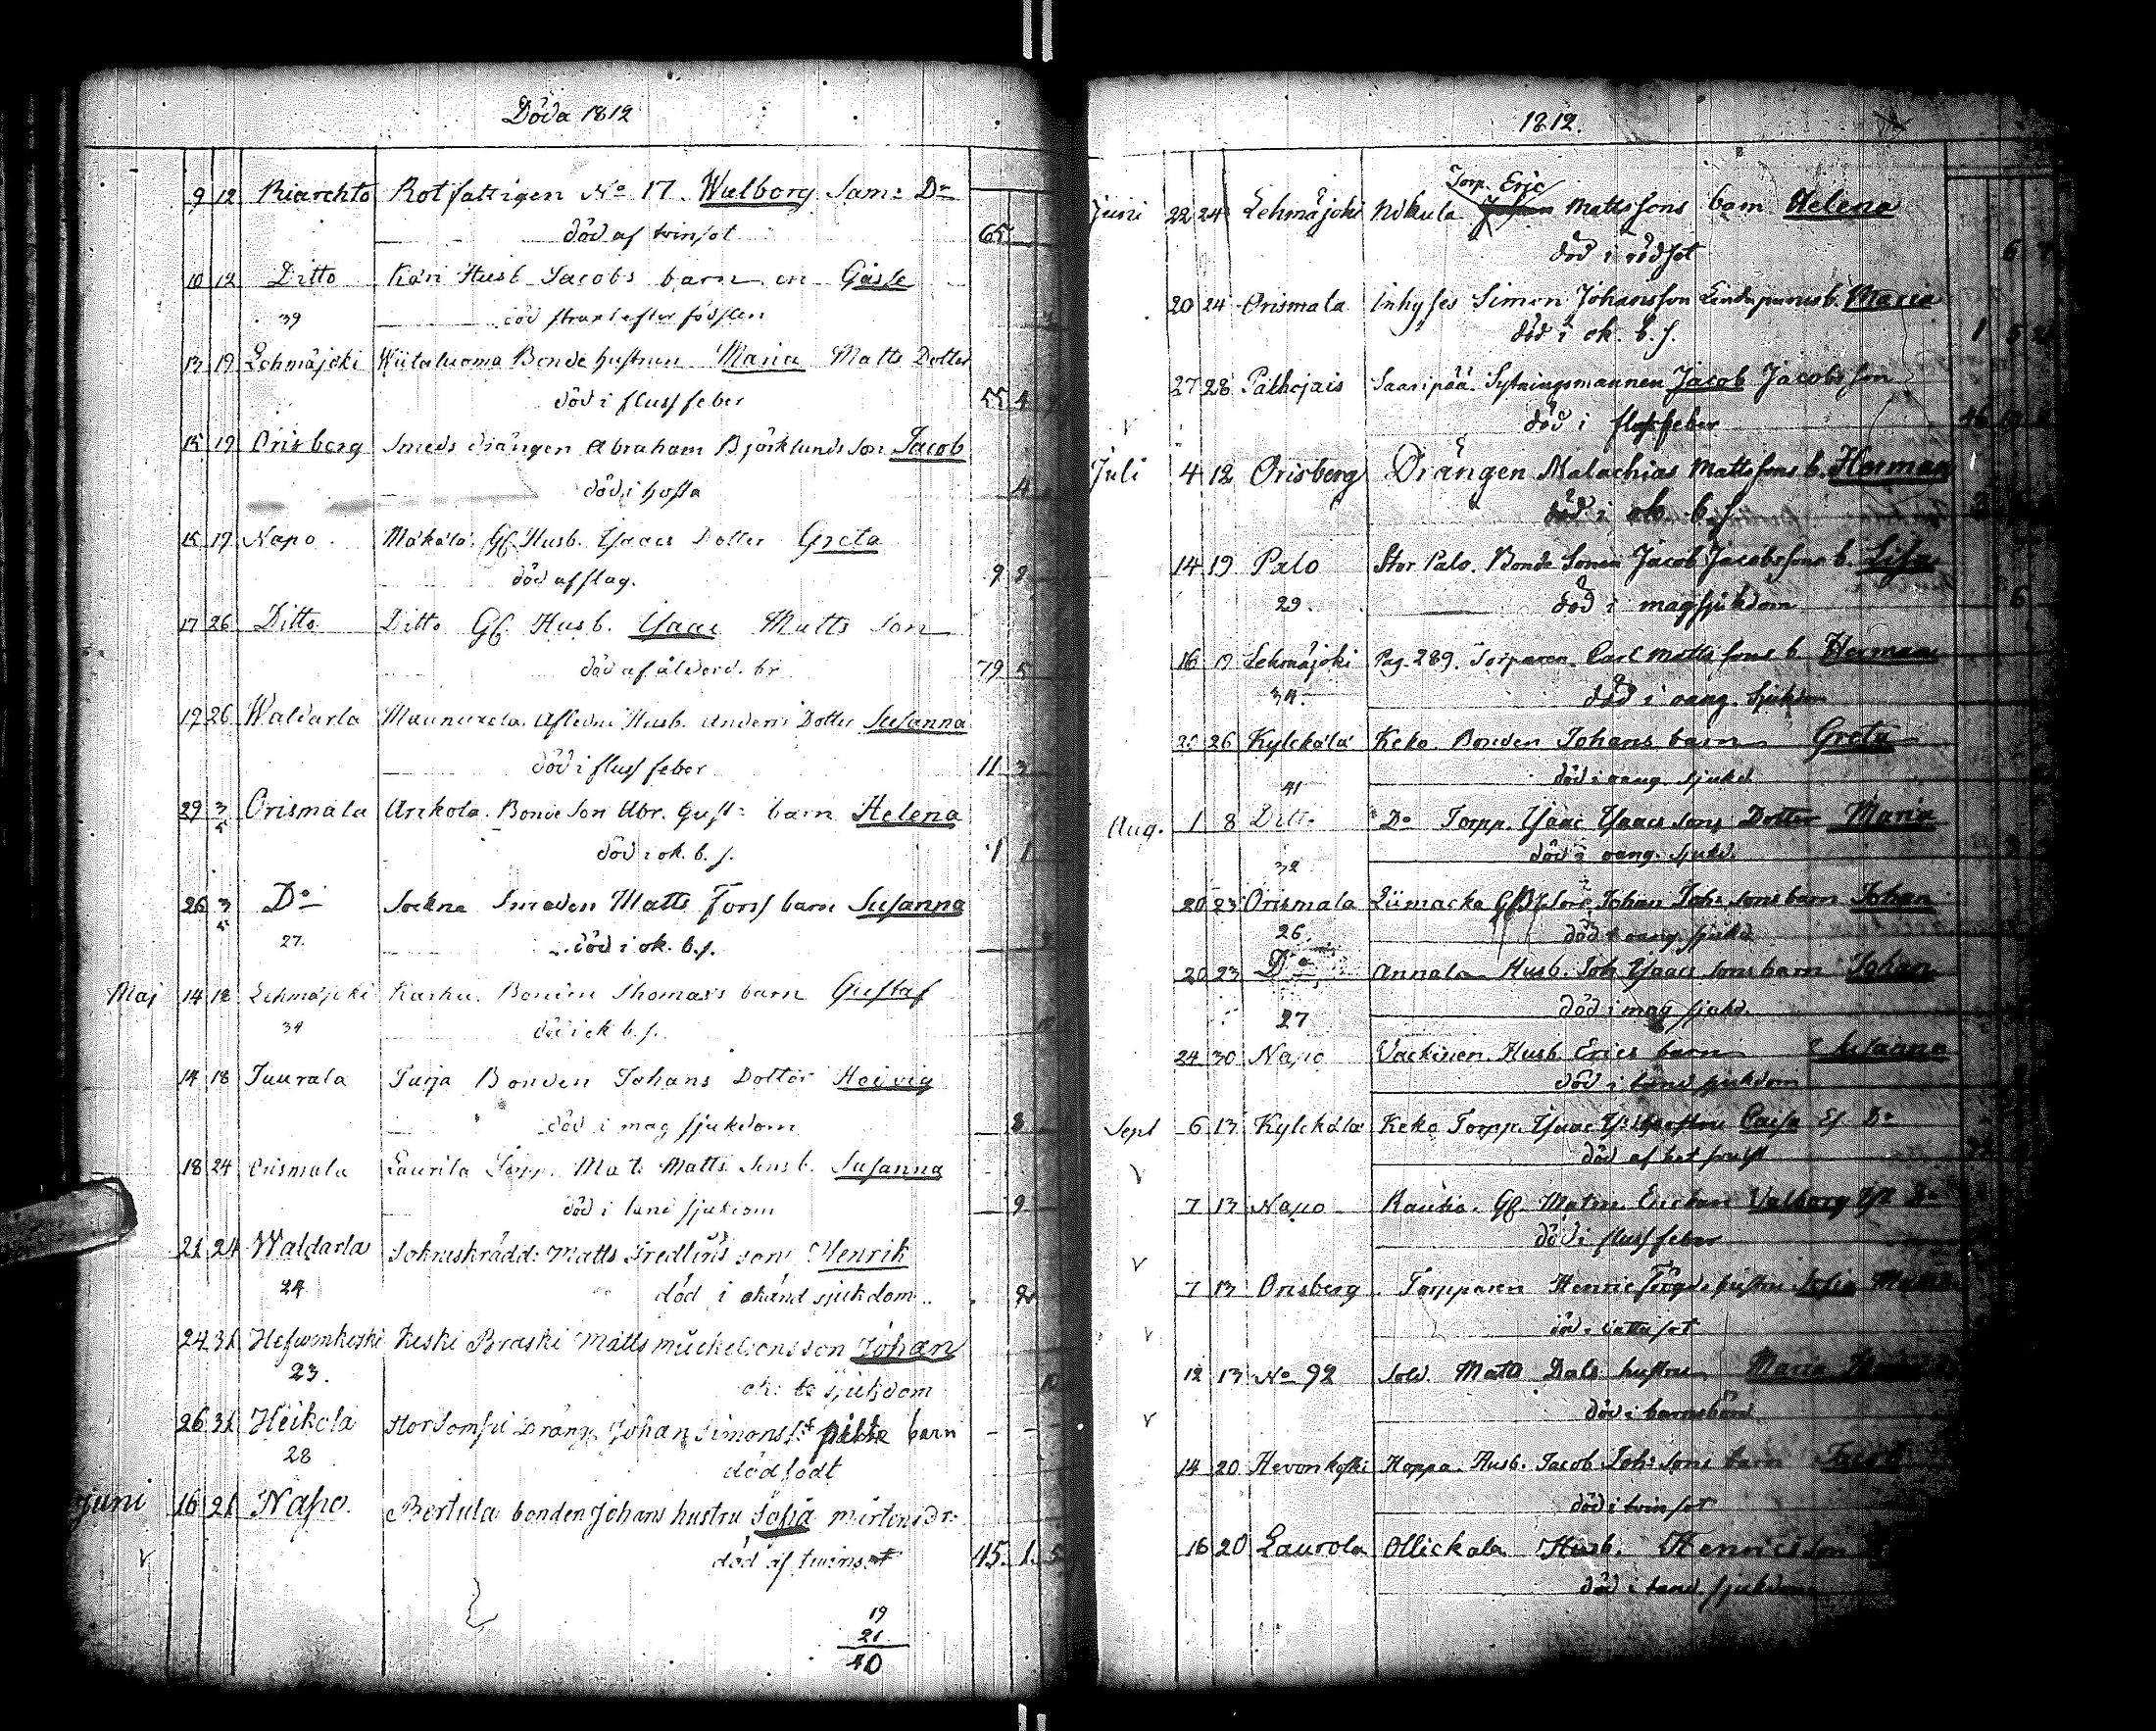 Döda 1812
9 12 Riarchto Rotfattigen No 17. Walborg Sam: Dr
död af twinsot 65
10 12 Ditto Kari Husb Jacobs barn en Gåsse
39 död straxt efter födslen
13 19 Lehmäjoki Wiitaluoma Bonde hustrun Maria Matts Dotter
död i fluss feber 55 4
15 19 Orisberg Smeds drängen Abraham Björklunds Son Jacob
död i hosta 4
15 19 Napo Mäkälä. Gf. Husb. Isaacs Dotter Greta
död af slag. 9 2
17 26 Ditto Ditto Gf. Husb. Isaac Matts Son
död af ålderd. br 79 5
19 26 Waldarla Maunuxela. Afledne Husb. Anders Dotter Susanna
död i fluss feber 11 3
29 3/5 Orismala Arckola. Bonde Son Abr. Gust: barn Helena
död i ok. b. s. 1 1
26 3/5 Do Sockne Smeden Matts Forss barn Susanna
27. död i ok. b.s.
Maj 14 18 Lehmäjoki Karhu. Bonden Thomas's barn Gustaf
34 död i ok b. s.
14 18 Tuurala Turja Bonden Johans Dotter Hedvig
död i mag sjukdom 8
18 24 Orismala Laurila Torp. Matts Matts Sons b. Susanna
död i tand sjukdom 9
21 24 Waldarla Sokneskrädd: Matts Fredlins son Henrik
24 död i okänd sjukdom 2
24 31 Hefwonkoski Keski Braski Matts Mickelsons son Johan
23. ok: be sjukdom
26 31 Heikola Storsomppi Dräng. Johan Simonss: barn
28 dödfödt
Juni 16 21 Napo. Bertula bonden Johans hustru Sofia Mårtensdr:
död af twinsot 45. 1. 5
19
21
40
1812.
Torp. Eric
Juni 22 24 Lehmäjoki Nikula Mattssons barn Helena
död i rödsot 6
20 24 Orismala Inhyses Simon Johansson b. Maria
död i ok. b. s. 1 5
27 28 Palhojais Saaripää. Sytningsmannen Jacob Jacobsson
död i flussfeber 46
Juli 4 12 Orisberg Drängen Malachias Mattssons b. Herman
död i ok. b. s.
14 19 Palo Stor Palo. Bonde Sonen Jacob Jacobssons b. Lisa
29. död i magsjukdom 6
16 19 Lehmäjoki Pag. 289. Torparen Carl Matts sons b Herman
34. död i oang. sjukdom
26 Kylckälä Keko Bonden Johans barn Greta
41 död i oang. sjukd.
Aug. 1 8 Ditto Do Torpp. Isaac Isaacs Sons Dotter Maria
32 död i oang. sjukd.
20 23 Orismala Liimacka Johan Joh: Sons barn Johan
26. död i oang. sjukd
20 23 Do Annala Husb. Joh Isaacs Sons barn Johan
27 död i mag sjukd.
24 30 Napo Vackinen. Husb. Erics barn Susanna
död i tand sjukdom
Sept 6 13 Kylckälä Keko Torpp. Isaac Is: hustru Caisa Es. Dr
död af
7 13 Napo Rauho. Gf. Matrn. Valborg Dr
död i fluss feber
7 13 Orisberg Torpparen Henric hustru Sofia
död i sot
12 13 No 92 Sold. Matts Dals hustru Maria
död i barnsbörd
14 20 Hevonkoski Hoppa. Husb. Jacob Joh: Sons barn Jacob
död i twinsot
16 20 Laurola Ollickala Husb. Henrics son
död i tand sjukdom